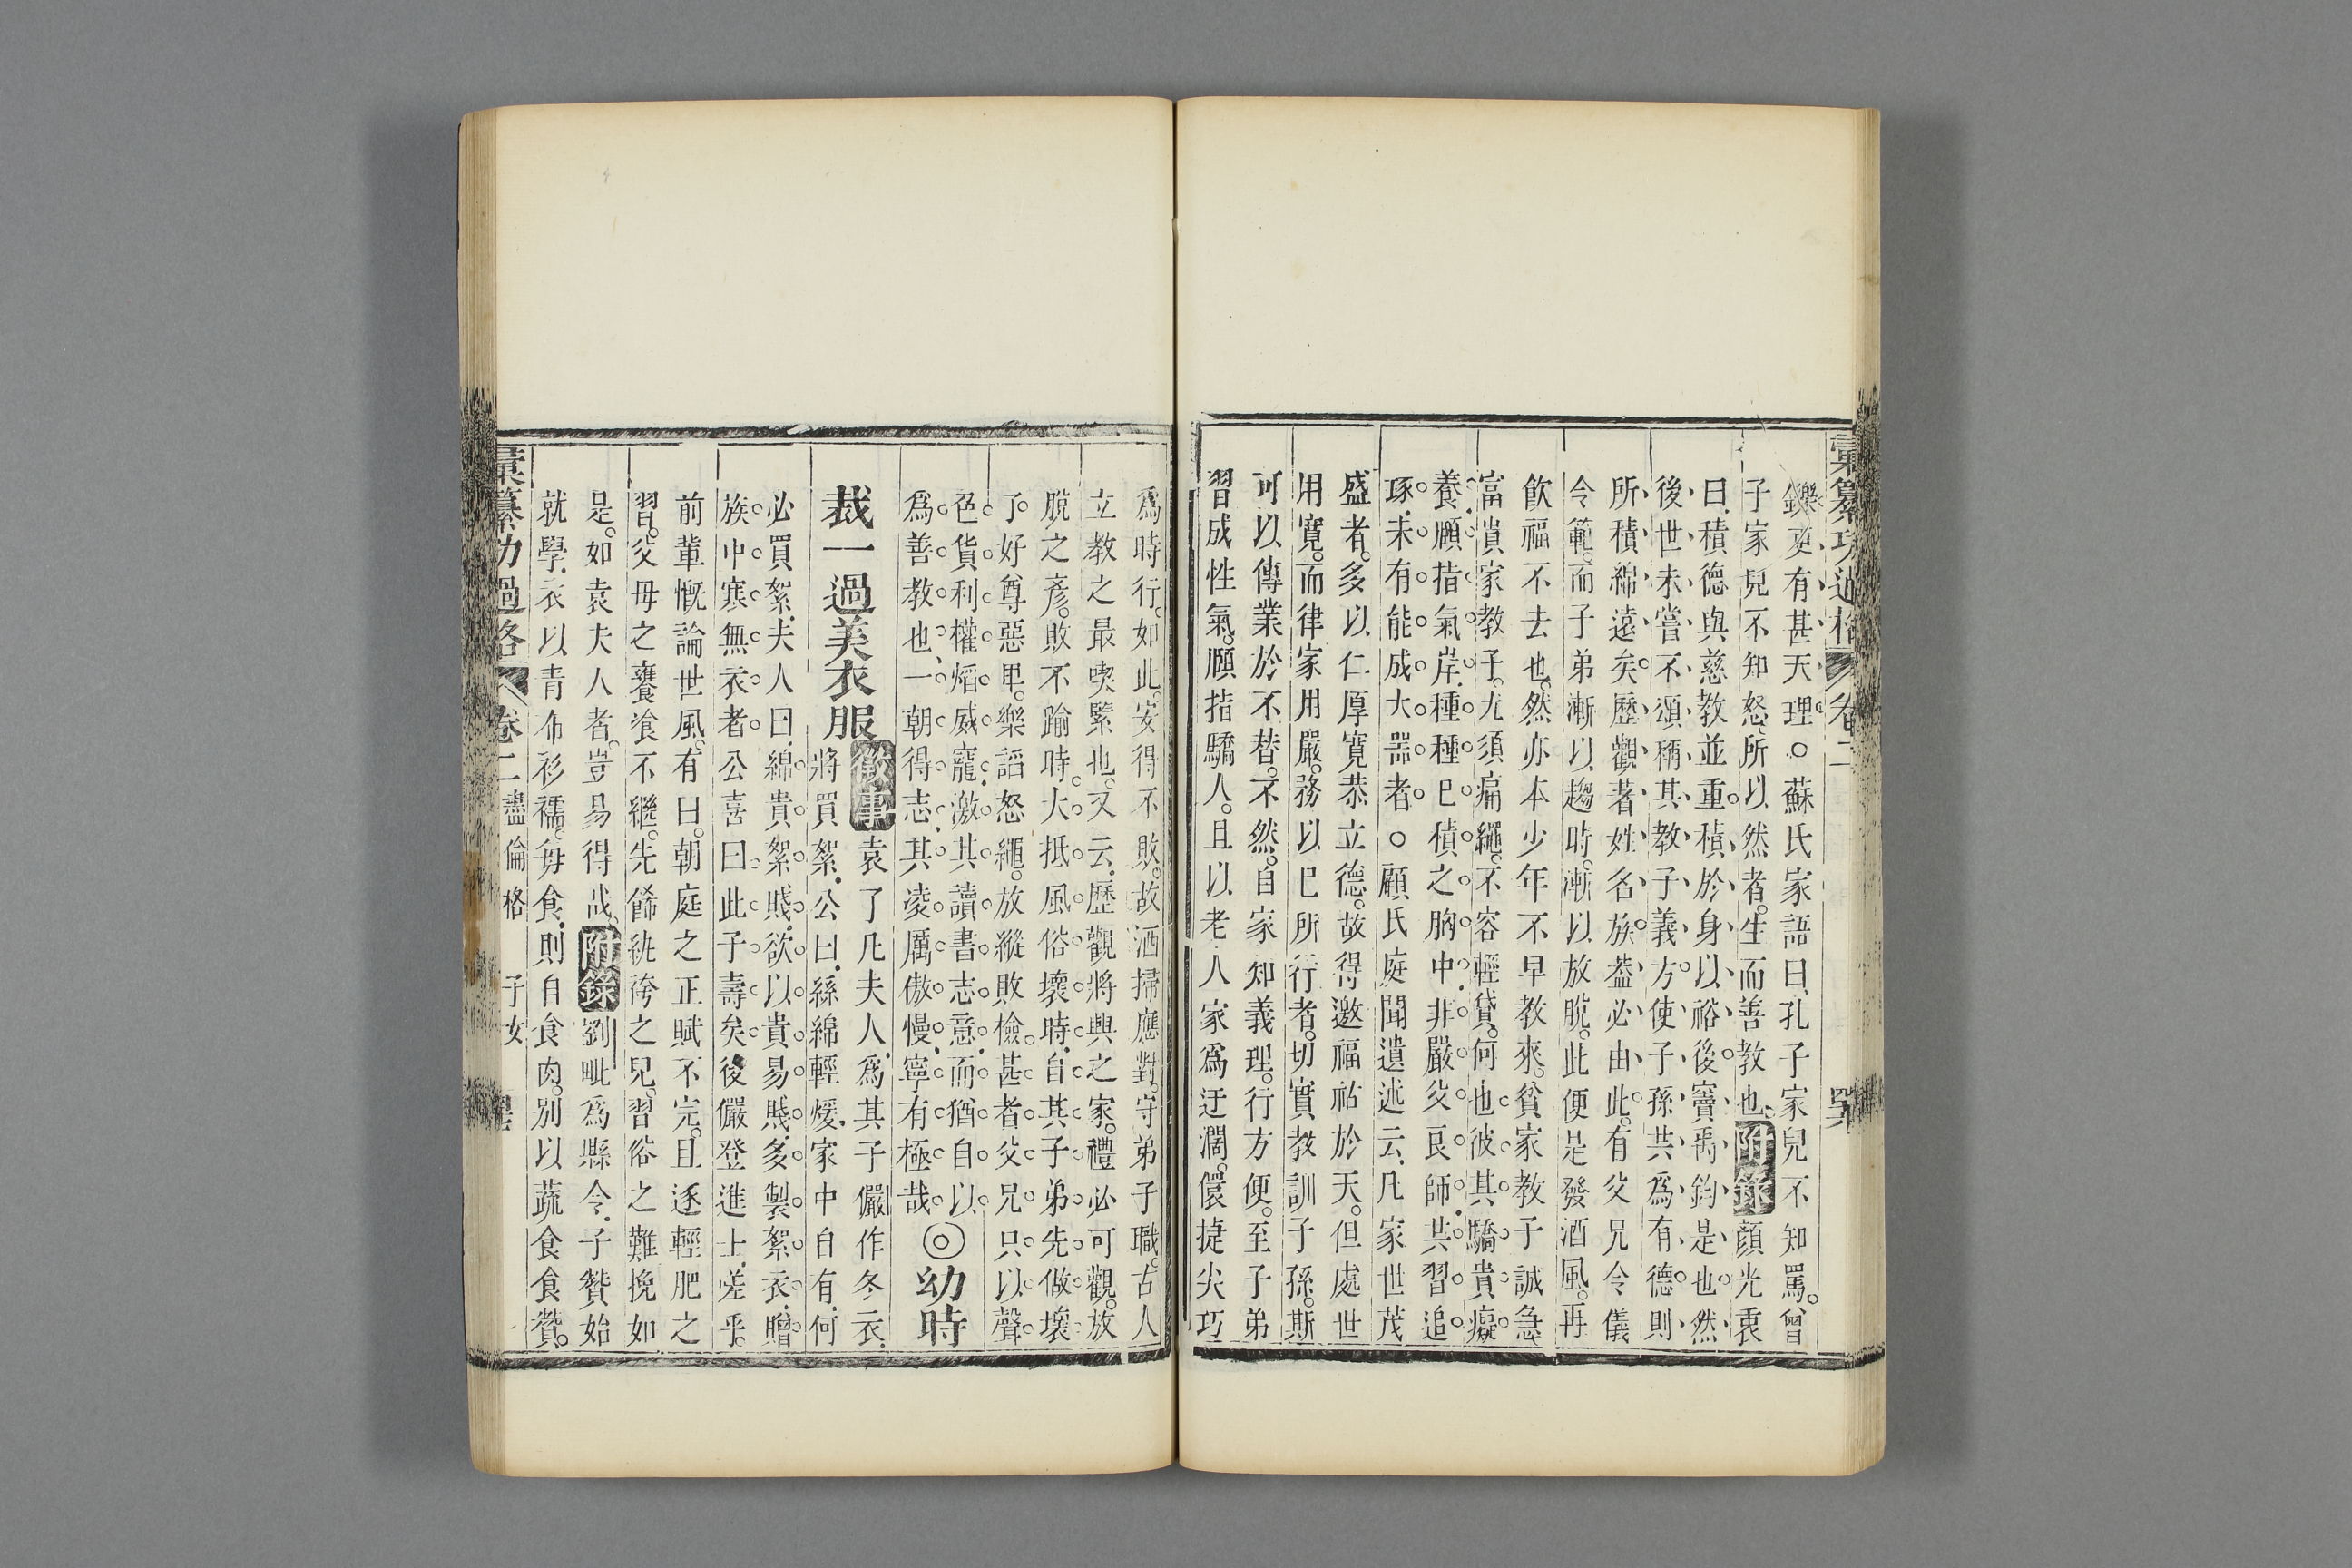 彙纂功過格 卷二
鑠更有甚天理○蘇氏家語曰孔子家兒不知罵曾
子家兒不知怒所以然者生而善教也附錄顏光衷
曰積德與慈教並重積於身以裕後竇禹鈞是也然
後世未嘗不頌稱其教子義方使子孫共為有德則
所積綿遠矣歷觀著姓名族葢必由此有父兄令儀
令範而子弟漸以趨時漸以放脫此便是發酒風再
飲福不去也然亦本少年不早教來貧家教子誠急
富貴家教子尤須痛繩不容輕貸何也彼其驕貴癡
養願指氣岸種種巳積之胸中非嚴父良師共習追
琢未有能成大器者○顧氏庭聞遺述云凡家世茂
盛者多以仁厚寬恭立德故得邀福祐於天但處世
用寬而律家用嚴務以巳所行者切實教訓子孫斯
可以傳業於不替不然自家知義理行方便至子弟
習成性氣願指驕人且以老人家為迂濶儇捷尖巧
為時行如此安得不敗故洒掃應對守弟子職古人
立教之最喫緊也又云歷觀將興之家禮必可觀放
脫之彥敗不踰時大抵風俗壞時自其子弟先做壞
了好尊惡卑樂謟怒繩放縱敗檢甚者父兄只以聲
色貨利權熖威寵激其讀書志意而猶自以
為善教也一朝得志其凌厲傲慢寧有極哉◎幼時
裁一過美衣服徵事袁了凡夫人為其子儼作冬衣
將買絮公曰絲綿輕煖家中自有何
必買絮夫人曰綿貴絮賤欲以貴易賤多製絮衣贈
族中寒無衣者公喜曰此子壽矣後儼登進士嗟乎
前輩慨論世風有曰朝庭之正賦不完且逐輕肥之
習父母之饔飧不繼先飾紈袴之兒習俗之難挽如
是如袁夫人者豈易得哉附錄劉毗為縣令子贊始
就學衣以青布衫襦每食則自食肉别以蔬食食贊
彙纂功過格 卷二 盡倫格 子女